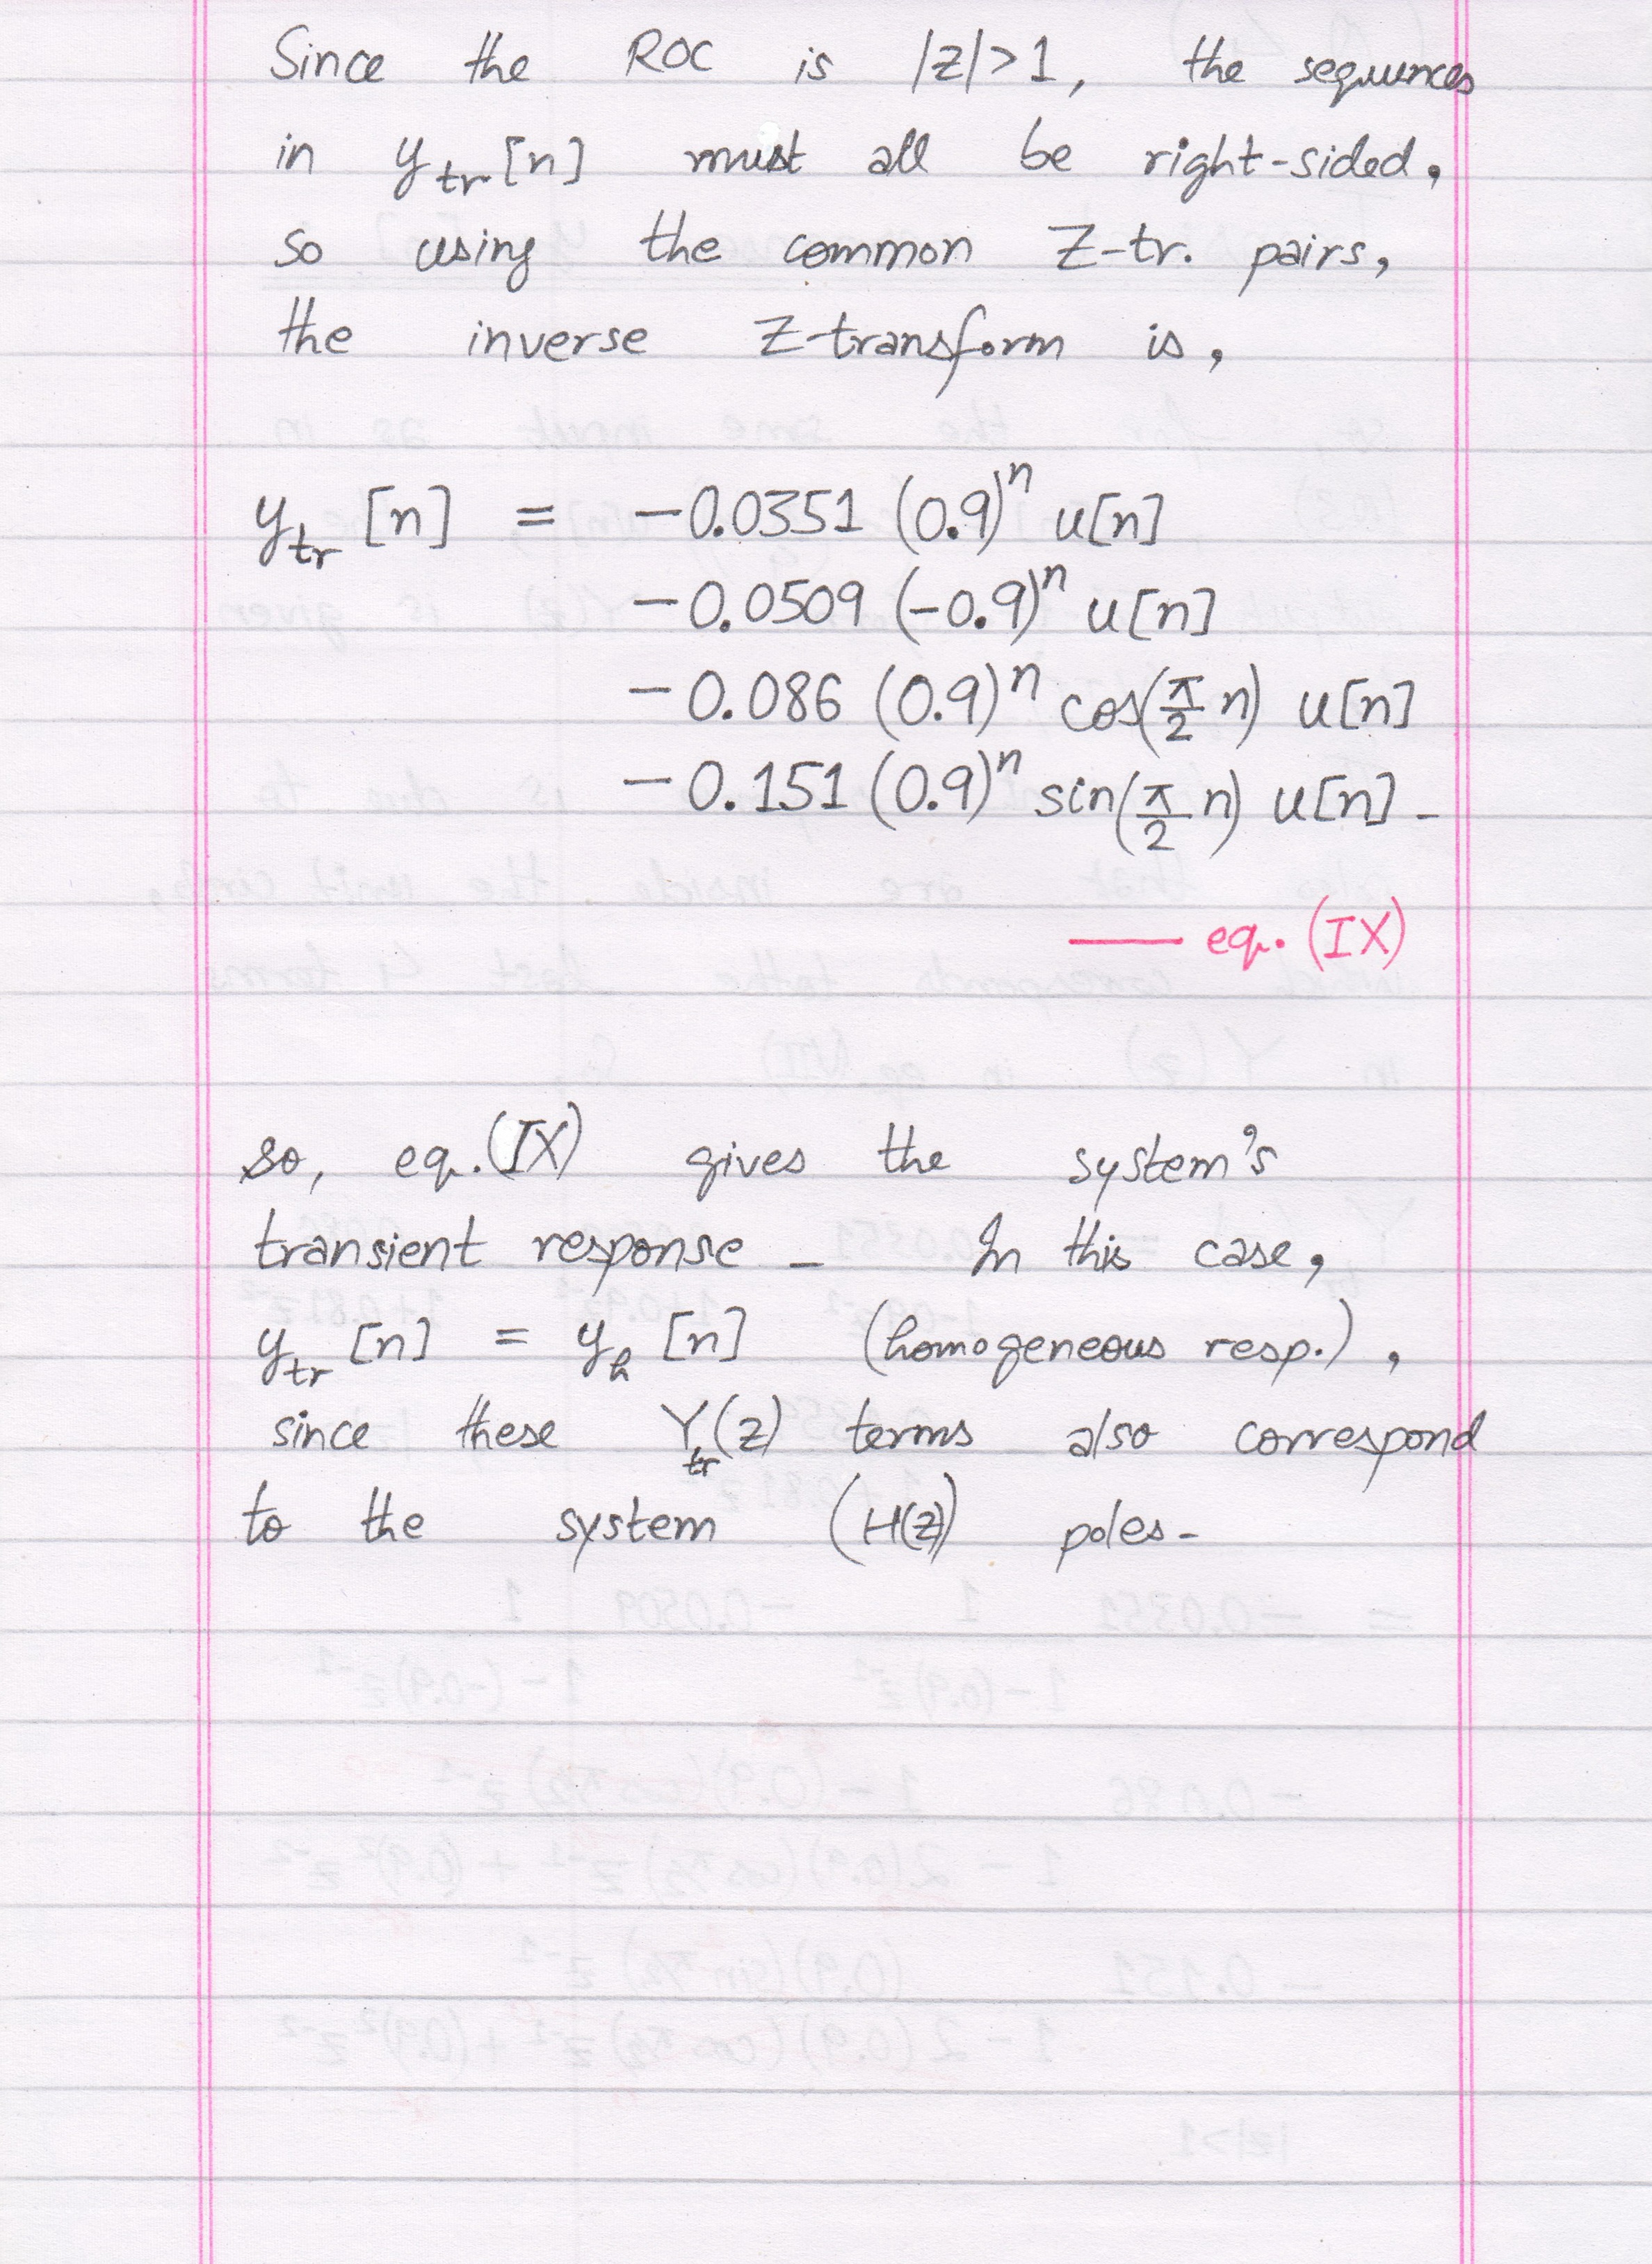 Since the ROC is |z|>1, the sequences
in y_tr[n] must all be right-sided,
so using the common Z-tr. pairs,
the inverse Z-transform is,
y_tr [n] = -0.0351 (0.9)^n u[n]
-0.0509 (-0.9)^n u[n]
-0.086 (0.9)^n cos(π/2 n) u[n]
-0.151 (0.9)^n sin(π/2 n) u[n] -
— eq. (IX)
so, eq.(IX) gives the system's
transient response - In this case,
y_tr [n] = y_h [n] (homogeneous resp.),
since these Y_tr(z) terms also correspond
to the system (H(z)) poles-